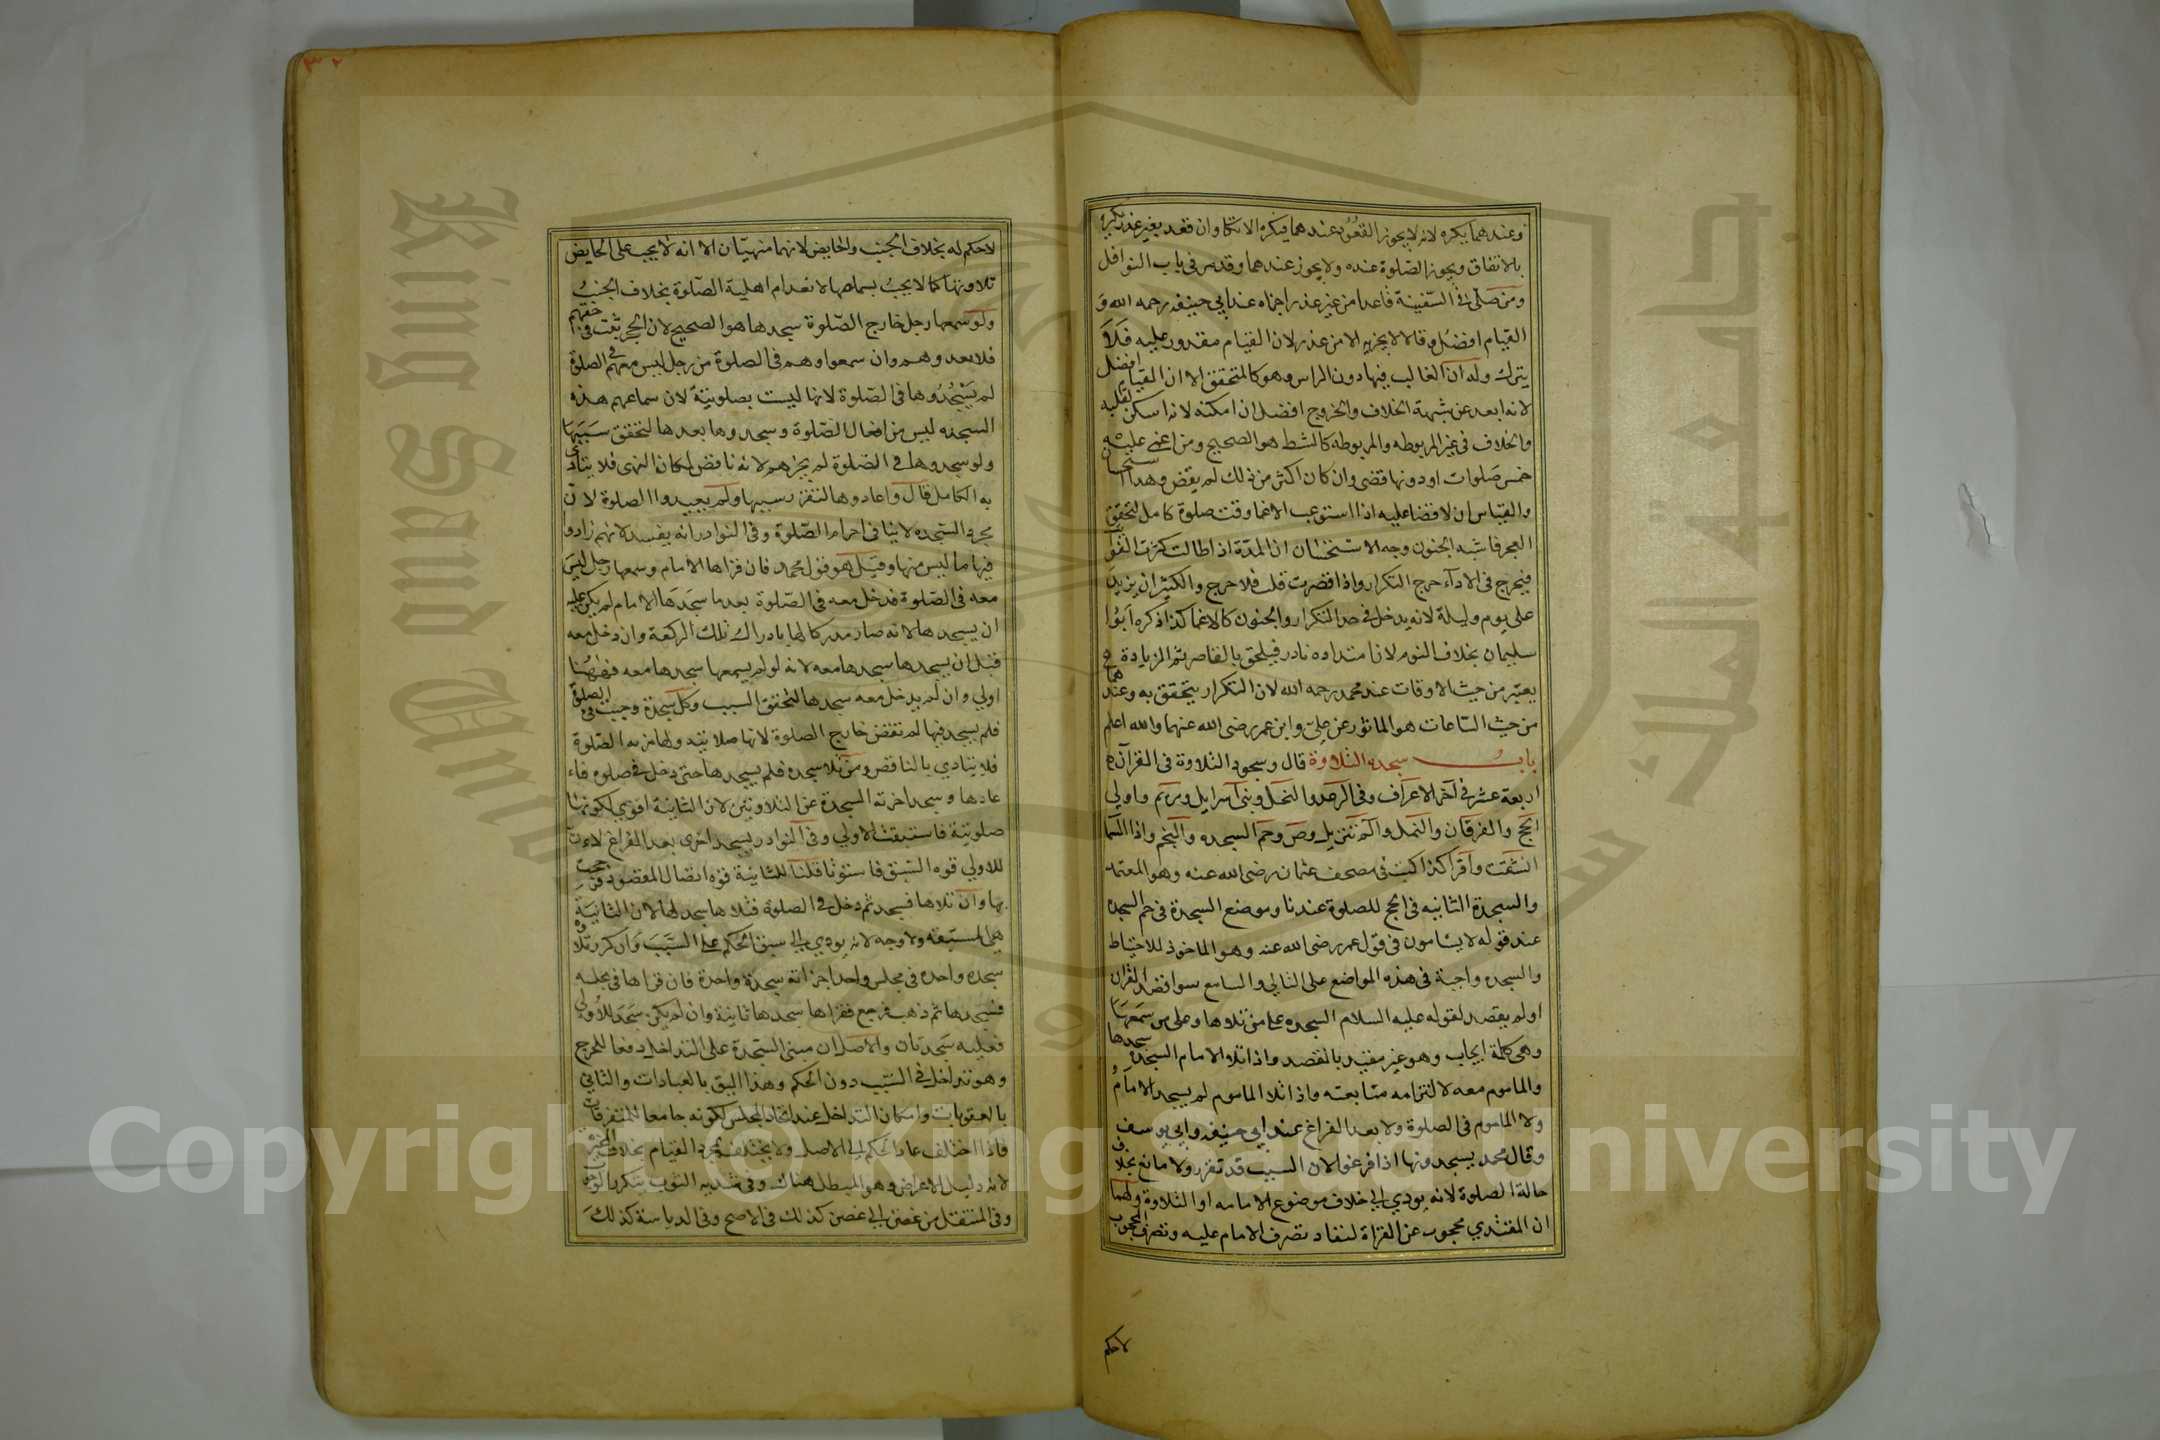 وعندهما يكره لانه لا يجوز القعود عندهما فيكره الاتكا وان قعد بغير عذر يكره
بالاتفاق ويجوز الصلوة عنده ولا يجوز عندهما وقد مر في باب النوافل
ومن صلى في السفينة قاعدا من غير عذر اجزاه عند ابي حنيفه رحمه الله و
القيام افضل وقالا لا يجزيه الا من عذر لان القيام مقدور عليه فلا
يترك وله ان الغالب فيها دوران الراس وهو كالمتحقق الا ان القيام افضل
لانه ابعد عن شبهة الخلاف والخروج افضل ان امكنه لانه اسكن لقلبه
والخلاف في غير المربوطه والمربوطه كالشط هو الصحيح ومن اغمي عليه
خمس صلوات او دونها قضى وان كان اكثر من ذلك لم يقض وهذا استحسان
والقياس ان لا قضا عليه اذا استوعب الاغما وقت صلوة كامل لتحقق
العجز فاشبه الجنون وجه الاستحسان ان المدة اذا طالت كثرت الفوايت
فيحرج في الادآء حرج التكرار واذا قصرت قلت فلا حرج والكثير ان يزيد
على يوم وليلة لانه يدخل في حد التكرار والجنون كالاغما كذا ذكره ابوا
سليمان بخلاف النوم لان امتداده نادر فيلحق بالقاصر ثم الزيادة
يعتبر من حيث الاوقات عند محمد رحمه الله لان التكرار يتحقق به وعندهما
من حيث الساعات هو الماثور عن علي وابن عمر رضى الله عنهما والله اعلم
باب سجده التلاوة قال وسجود التلاوة في القرآن
اربعة عشر في آخر الاعراف وفي الرعد والنحل وبني اسرايل ومريم واولي
الحج والفرقان والنمل والم تنزيل وص وحم السجده والنجم واذا السما
انشقت واقرا كذا كتب في مصحف عثمان رضى الله عنه وهو المعتمد
والسجدة الثانيه في الحج للصلوة عندنا وموضع السجدة في حم السجده
عند قوله لا يسامون في قول عمر رضى الله عنه وهو الماخوذ للاحتياط
والسجده واجبة في هذه المواضع على التالي والسامع سوا قصد القران
او لم يقصد لقوله عليه السلام السجده على من تلاها وعلى من سمعها
وهي كلمة ايجاب وهو غير مقيد بالقصد واذا تلا الامام السجده سجدها
والماموم معه لالتزامه متابعته واذا تلا الماموم لم يسجد الامام
ولا الماموم في الصلوة ولا بعد الفراغ عند ابي حنيفه وابي يوسف
وقال محمد يسجدونها اذا فرغوا لان السبب قد تقرر ولا مانع بخلاف
حالة الصلوة لانه يودي الي خلاف موضوع الامامه او التلاوة ولهما
ان المقتدي محجوب عن القراة لنفاد تصرف الامام عليه وتصرف المحجوب
لاحكم
٣٢
لا حكم له بخلاف الجنب والحايض لانهما منهيان الا انه لا يجب على الحايض
تلاوتها كما لا يجب بسماعها لانعدام اهلية الصلوة بخلاف الجنب
ولو سمعها رجل خارج الصلوة سجدها هو الصحيح لان الحجر ثبت في حقهم
فلا يعدوهم وان سمعوا وهم في الصلوة من رجل ليس معهم في الصلوة
لم يسجدوها في الصلوة لانها ليست بصلوتية لان سماعهم هذه
السجده ليس من افعال الصلوة وسجدوها بعدها لتحقق سببها
ولو سجدوها في الصلوة لم يجزهم لانه ناقص لمكان النهى فلا يتادى
به الكامل قال واعادوها لتقرر سببها ولم يعيدوا الصلوة لان
مجرد السجده لا ينافي احرام الصلوة وفي النوادر انه يفسد لانهم زادوا
فيها ما ليس منها وقيل هو قول محمد فان قراها الامام وسمعها رجل ليس
معه في الصلوة فدخل معه في الصلوة بعد ما سجدها الامام لم يكن عليه
ان يسجدها لانه صار مدركا لها بادراك تلك الركعة وان دخل معه
قبل ان يسجدها سجدها معه لانه لو لم يسمعها سجدها معه فههنا
اولي وان لم يدخل معه سجدها لتحقق السبب وكل سجدة وجبت في الصلوة
فلم يسجد فيها لم تقض خارج الصلوة لانها صلاتيه ولها مزيه الصلوة
فلا يتادي بالناقص ومن تلا سجده فلم يسجدها حتى دخل في صلوه فاء
عادها وسجد اجزته السجدة عن التلاوتين لان الثانية اقوي لكونها
صلوتية فاستتبعت الاولي وفي النوادر يسجد اخرى بعد الفراغ لان
للاولي قوه السبق فاستوتا قلنا للثانية قوه اتصال المقصود فرجحت
بها وان تلاها فسجد ثم دخل في الصلوة فتلاها سجد لها لان الثانية
هي المستتبعه ولا وجه لانه يودي الي سبق الحكم على السبب وان كرر تلاوة
سجده واحده في مجلس واحد اجزاته سجدة واحدة فان قراها في مجلسه
فسجدها ثم ذهب فرجع فقراها سجدها ثانية وان لم يكن سجد للاولي
فعليه سجدتان والاصل ان مبنى السجدة على التداخل دفعا للحرج
وهو تداخل في السبب دون الحكم وهذا اليق بالعبادات والثاني
بالعقوبات وامكان التداخل عند اتحاد المجلس لكونه جامعا للمتفرقات
فاذا اختلف عاد الحكم الي الاصل ولا يختلف بمجرد القيام بخلاف المخيرة
لانه دليل الاعراض وهو المبطل هناك وفي تسديه الثوب يتكرر الوجوب
وفي المنتقل من غصن الي غصن كذلك في الاصح وفي الدياسة كذلك
King Saud University
جامعة الملك سعود
Copyright © King Saud University